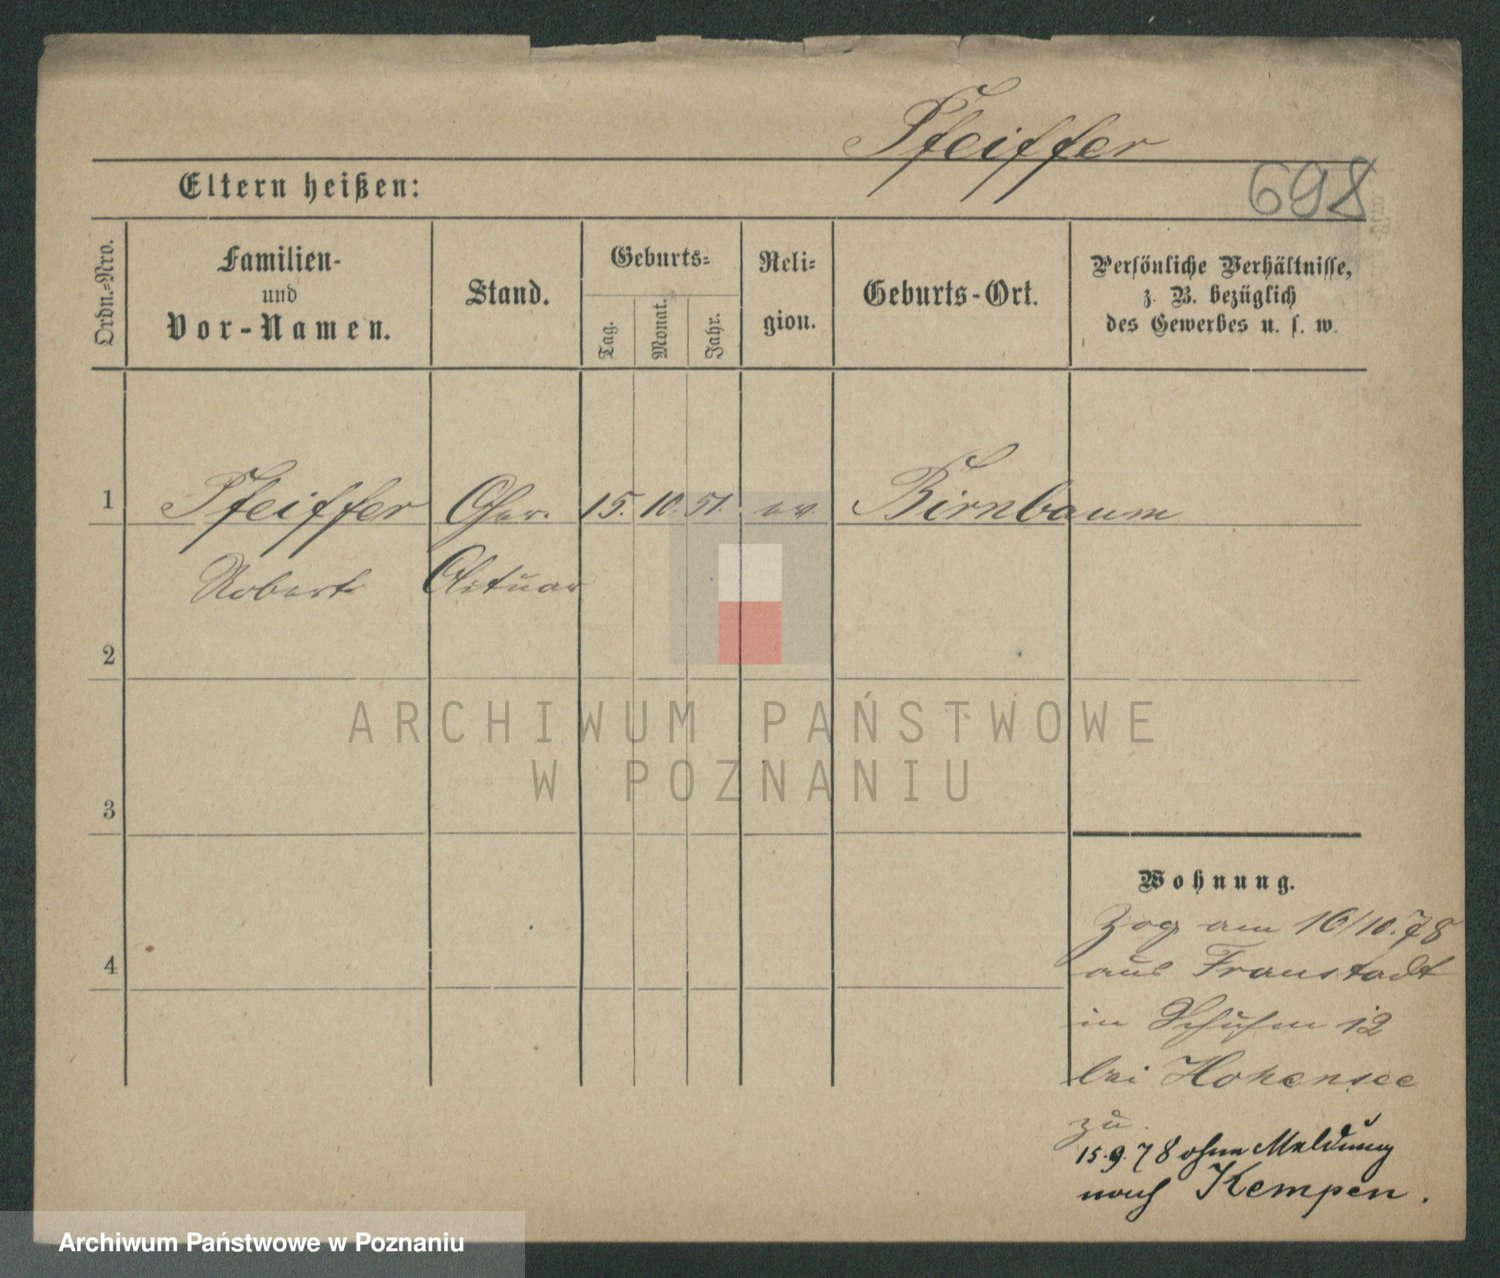 Pfeiffer
698
Eltern heißen:
Ordn.-Nro.
Familien-
und
Vor-Namen.
Stand.
Geburts-
Tag.
Monat.
Jahr.
Reli-
gion.
Geburts-Ort.
Persönliche Verhältnisse,
z. B. bezüglich
des Gewerbes u. s. w.
1 Pfeiffer 15. 10. 51. ev. Birnbaum
Robert Aktuar
2
3
4
Wohnung.
Zog am 16/10.78
aus Fraustadt
in 12
bei Hohensee
zu.
15.9.78 ohne Meldung
nach Kempen.
ARCHIWUM PAŃSTWOWE
W POZNANIU
Archiwum Państwowe w Poznaniu